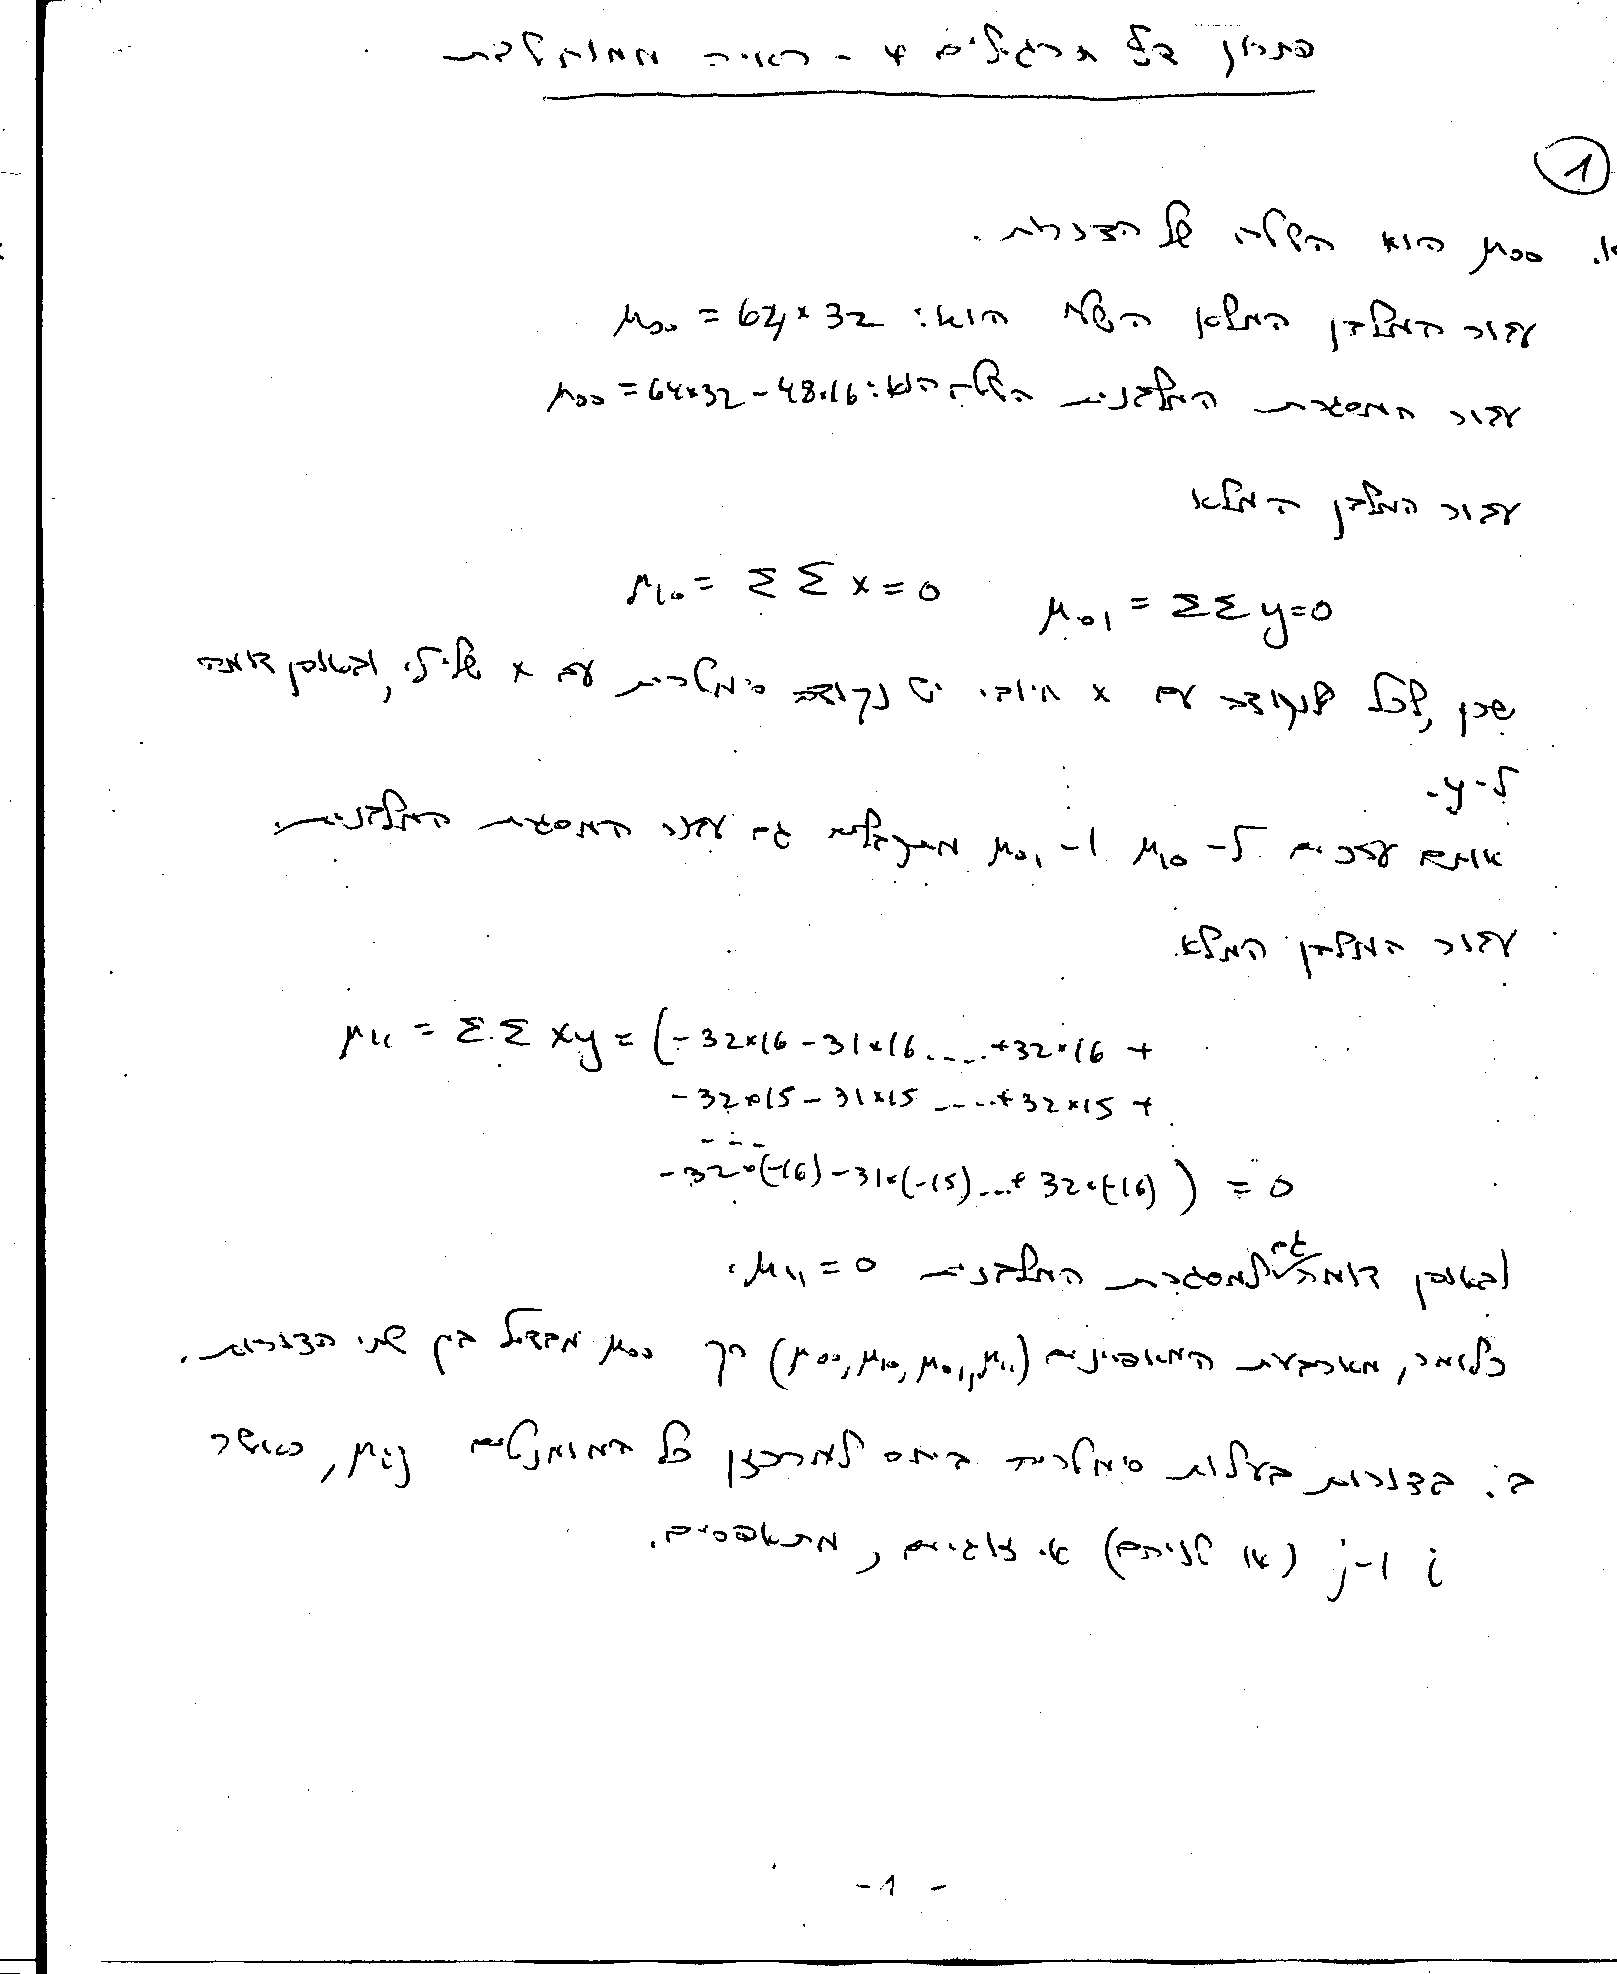 פתרון דף תרגילים 4 - ראיה ממוחשבת
1
א. μ₀₀ הוא השטח של הצורות.
עבור המלבן המלא השטח הוא: μ₀₀ = 64×32
עבור המסגרת המלבנית השטח הוא: μ₀₀ = 64×32 - 48×16
עבור המלבן המלא
μ₁₀ = ΣΣ x = 0   μ₀₁ = ΣΣ y = 0
שכן, לכל נקודה עם x חיובי יש נקודה סימטרית עם x שלילי, ובאופן דומה
ל-y.
אותם ערכים ל-μ₁₀ ו-μ₀₁ מתקבלים גם עבור המסגרת המלבנית.
עבור המלבן המלא
μ₁₁ = ΣΣ xy = (-32×16 - 31×16 .... +32×16 +
-32×15 - 31×15 .... +32×15 +
- - -
-32×(-16) - 31×(-15) ... + 32×(-16) ) = 0
ובאופן דומה גם למסגרת המלבנית μ₁₁ = 0.
כלומר, מארבעת המאפיינים (μ₀₀, μ₁₀, μ₀₁, μ₁₁) רק μ₀₀ מבדיל בין שתי הצורות.
ב. בצורות בעלות סימטריה ביחס למרכזן כל המומנטים μᵢⱼ, כאשר
i ו-j (או שניהם) אי זוגיים, מתאפסים.
- 1 -